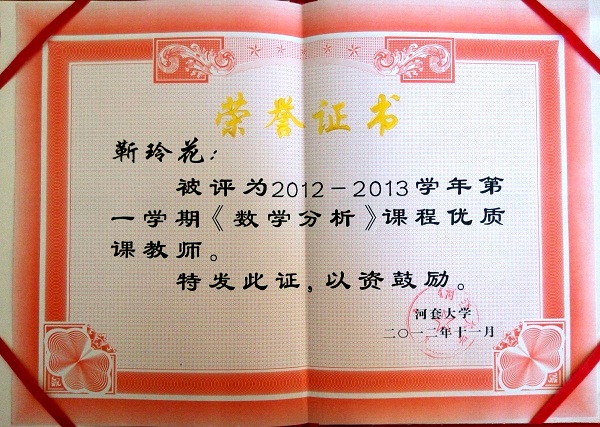 荣誉证书
靳玲花：
被评为2012－2013学年第
一学期《数学分析》课程优质
课教师。
特发此证，以资鼓励。
河套大学
二〇一二年十一月